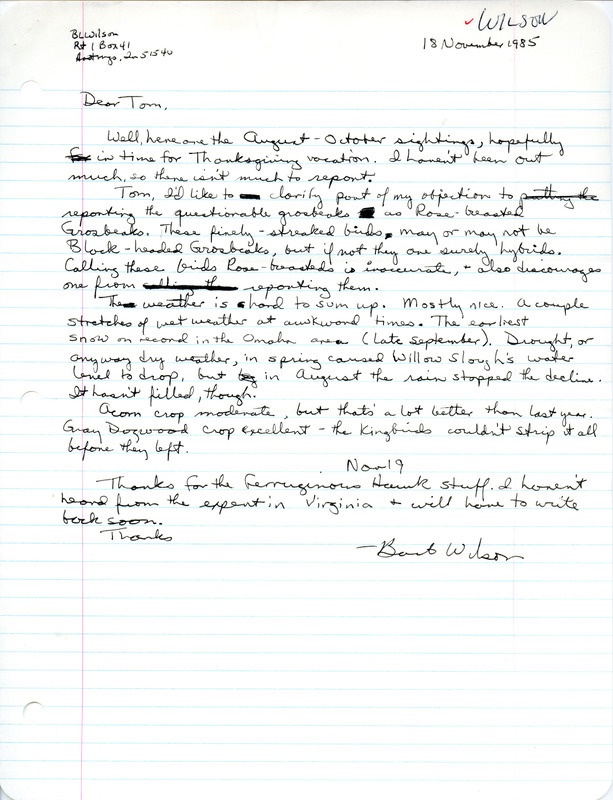 ✓ WILSON
BLWilson
Rt 1 Box 41
Hastings, Ia 51540
18 November 1985
Dear Tom,
Well, here are the August-October sightings, hopefully
in time for Thanksgiving vacation. I haven't been out
much, so there isn't much to report.
Tom, I'd like to clarify part of my objection to putting the
reporting the questionable grosbeaks as Rose-breasted
Grosbeaks. These finely-streaked birds, may or may not be
Black-headed Grosbeaks, but if not they are surely hybrids.
Calling these birds Rose-breasteds is inaccurate, + also discourages
one from reporting them.
The weather is hard to sum up. Mostly nice. A couple
stretches of wet weather at awkward times. The earliest
snow on record in the Omaha area (late September). Drought, or
anyway dry weather, in spring caused Willow Slough's water
level to drop, but in August the rain stopped the decline.
It hasn't filled, though.
Acorn crop moderate, but that's a lot better than last year.
Gray Dogwood crop excellent - the Kingbirds couldn't strip it all
before they left.
Nov 19
Thanks for the Ferruginous Hawk stuff. I haven't
heard from the expert in Virginia + will have to write
back soon.
Thanks
—Barb Wilson